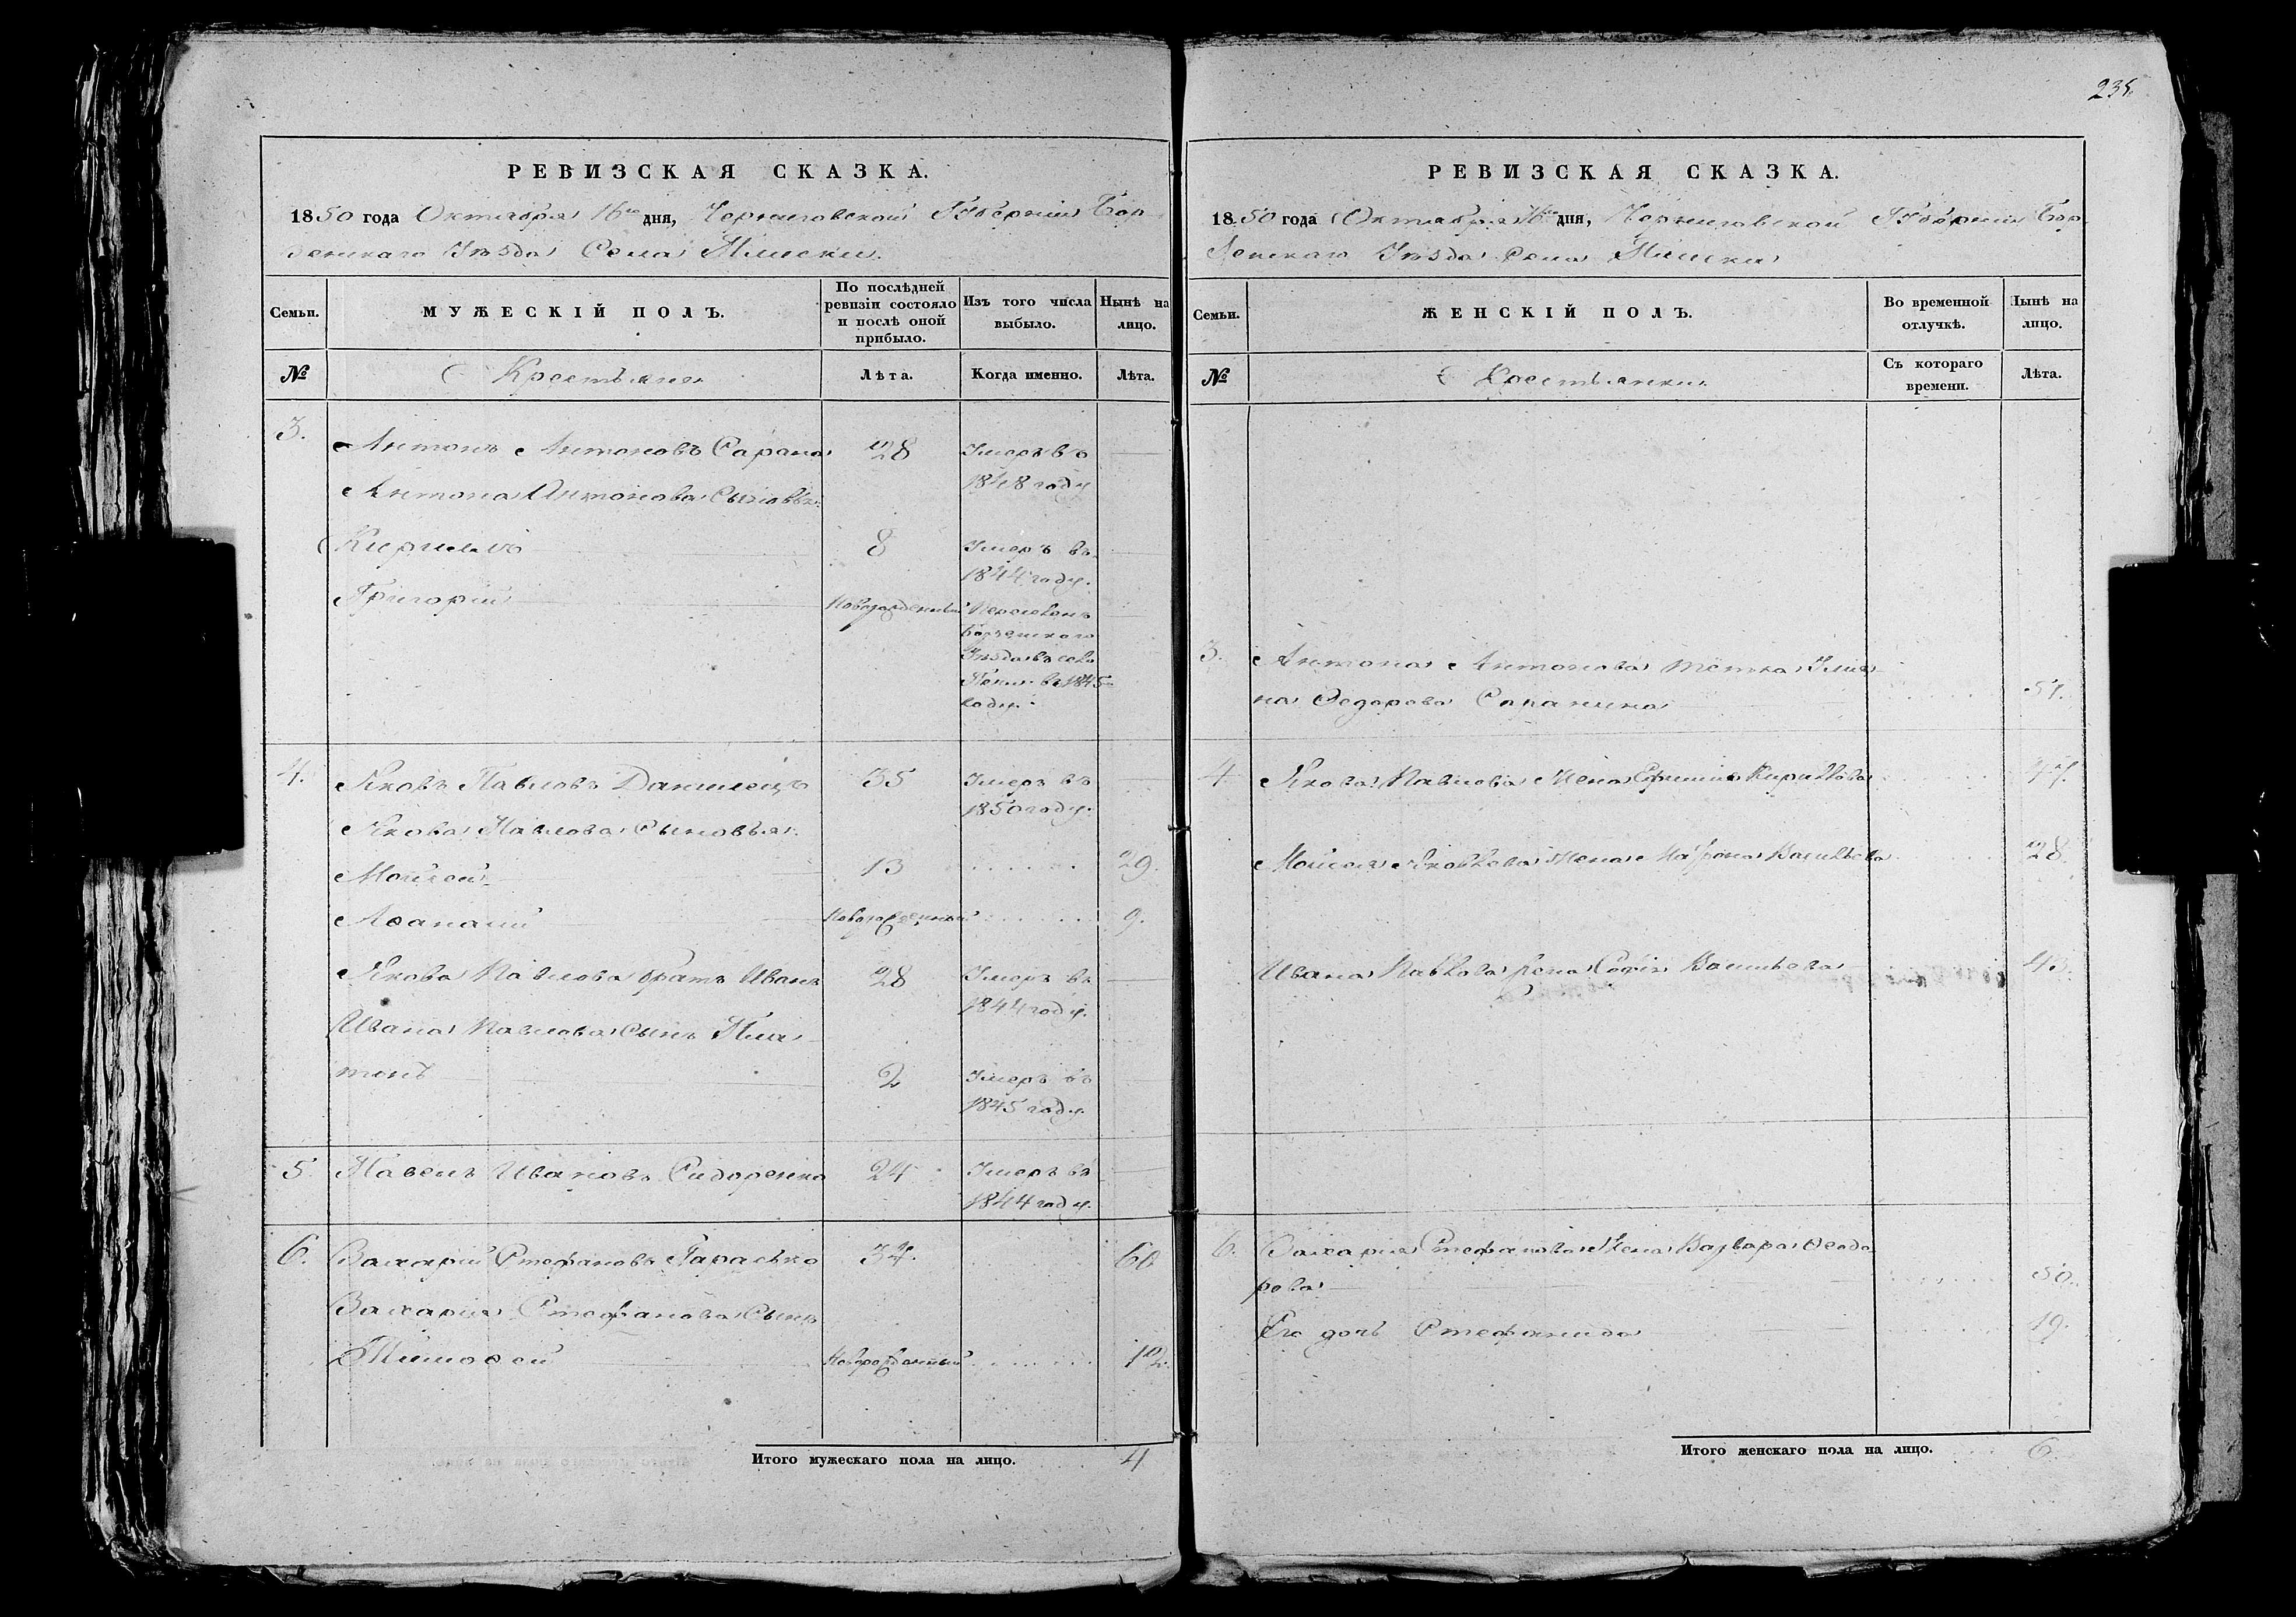 235.
РЕВИЗСКАЯ СКАЗКА.
1850 года Октября 16го дня, Черниговской Губерніи Бор-
зенскаго Уѣзда Села Плиски.
Семьи.
МУЖЕСКІЙ ПОЛЪ.
По послѣдней
ревизіи состояло
и послѣ оной
прибыло.
Изъ того числа
выбыло.
Нынѣ на
лицо.
№
Крестьяне
Лѣта.
Когда именно.
Лѣта.
3.
Антонъ Антоновъ Сарана 28 Умеръ въ
1848 году
Антона Антонова Сыновья:
Кирилъ 8 Умеръ въ
1844 году.
Григорій Новорожденный
Борзенскаго
Уѣзда въ село
въ 1845
году.
4. Яковъ Павловъ Данилецъ 35 Умеръ въ
1850 году.
Якова Павлова Сыновья:
Мойсей 13 29.
Аѳанасій Новорожденный 9.
Якова Павлова братъ Иванъ 28 Умеръ въ
1844 году.
Ивана Павлова Сынъ Пла-
тонъ 2 Умеръ въ
1845 году.
5. Павелъ Ивановъ Сидоренко 24 Умеръ въ
1844 году.
6. Захарій Стефановъ Парасько 34. 60
Захарія Стефанова Сынъ
Тимоѳей Новорожденный 12.
Итого мужескаго пола на лицо. 4
РЕВИЗСКАЯ СКАЗКА.
1850 года Октября 16го дня, Черниговской Губерніи Бор-
зенскаго Уѣзда Села Плиски
Семьи.
ЖЕНСКІЙ ПОЛЪ.
Во временной
отлучкѣ.
Нынѣ на
лицо.
№
Крестьянки
Съ котораго
времени.
Лѣта.
3. Антона Антонова тётка Улья-
на Федорова Саранина 51.
4 Якова Павлова Жена Кирилова
Мойсея Яковлева Жена Матрона Васильева 28.
Ивана Павлова Жена Софія Васильева 43.
6. Захарія Стефанова Жена Варвара Ѳеодо-
рова 50.
Его дочь Стефанида 19.
Итого женскаго пола на лицо. 6.